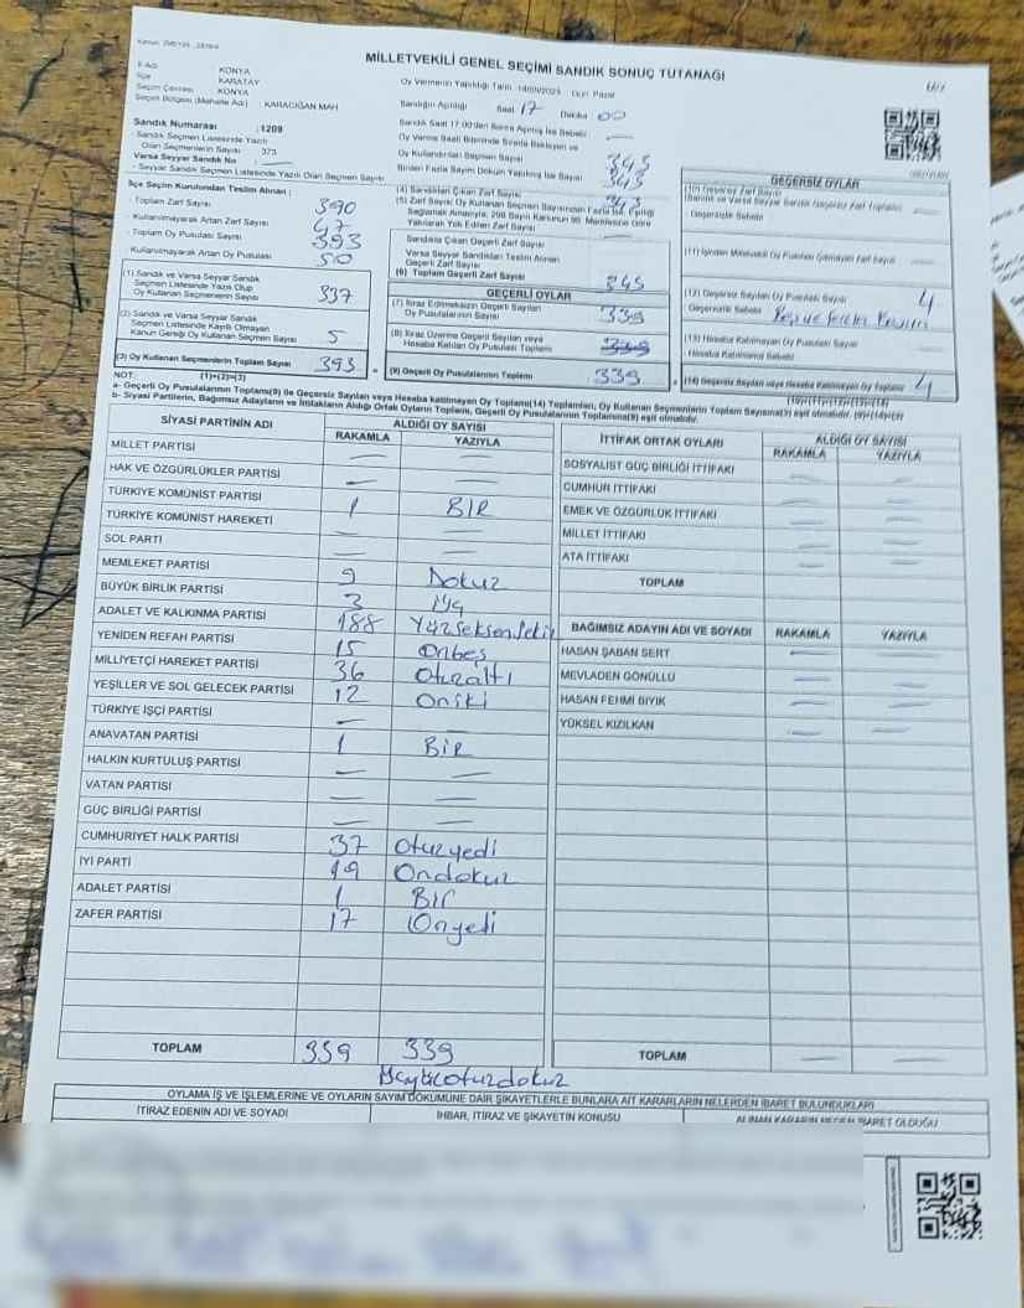 MİLLETVEKİLİ GENEL SEÇİMİ SANDIK SONUÇ TUTANAĞI
İl Adı : KONYA
İlçe : KARATAY
Seçim Çevresi : KONYA
Seçim Bölgesi (Mahalle Adı) : KARACIĞAN MAH
Oy Vermenin Yapıldığı Tarih : 14/05/2023 : Günü Pazar
Sandığın Açıldığı Saat 17 Dakika 00
Sandık Numarası : 1209
Sandık Seçmen Listesinde Yazılı
Olan Seçmenlerin Sayısı 373
Varsa Seyyar Sandık No : —
Seyyar Sandık Seçmen Listesinde Yazılı Olan Seçmen Sayısı
Sandık Saat 17.00'den Sonra Açılmış İse Sebebi —
Oy Verme Saati Bitiminde Sırada Bekleyen ve
Oy Kullandırılan Seçmen Sayısı 343
Birden Fazla Sayım Döküm Yapılmış İse Sayısı 343
İlçe Seçim Kurulundan Teslim Alınan :
Toplam Zarf Sayısı 390
Kullanılmayarak Artan Zarf Sayısı 47
Toplam Oy Pusulası Sayısı 393
Kullanılmayarak Artan Oy Pusulası 50
(1) Sandık ve Varsa Seyyar Sandık
Seçmen Listesinde Yazılı Olup
Oy Kullanan Seçmenlerin Sayısı 337
(2) Sandık ve Varsa Seyyar Sandık
Seçmen Listesinde Kayıtlı Olmayan
Kanun Gereği Oy Kullanan Seçmen Sayısı 5
(3) Oy Kullanan Seçmenlerin Toplam Sayısı 393
(1)+(2)=(3)
(4) Sandıktan Çıkan Zarf Sayısı 343
(5) Zarf Sayısı, Oy Kullanan Seçmen Sayısından Fazla İse, Eşitliği
Sağlamak Amacıyla, 298 Sayılı Kanunun 98. Maddesine Göre
Yakılarak Yok Edilen Zarf Sayısı —
Sandıkta Çıkan Geçerli Zarf Sayısı
Varsa Seyyar Sandıktan Teslim Alınan
Geçerli Zarf Sayısı
(6) Toplam Geçerli Zarf Sayısı 345
GEÇERLİ OYLAR
(7) İtiraz Edilmeksizin Geçerli Sayılan
Oy Pusulalarının Sayısı 339
(8) İtiraz Üzerine Geçerli Sayılan veya
Hesaba Katılan Oy Pusulası Toplamı
(9) Geçerli Oy Pusulalarının Toplamı 339
GEÇERSİZ OYLAR
(11) İçinden Milletvekili Oy Pusulası Çıkmayan Zarf Sayısı —
(12) Geçersiz Sayılan Oy Pusulası Sayısı 4
Geçersizlik Sebebi
(13) Hesaba Katılmayan Oy Pusulası Sayısı
Hesaba Katılmama Sebebi
(14) Geçersiz Sayılan veya Hesaba Katılmayan Oy Pusulası Toplamı 4
NOT:
a- Geçerli Oy Pusulalarının Toplamı(9) ile Geçersiz Sayılan veya Hesaba katılmayan Oy Toplamı(14) Toplamları, Oy Kullanan Seçmenlerin Toplam Sayısına(3) eşit olmalıdır.
b- Siyasi Partilerin, Bağımsız Adayların ve İttifakların Aldığı Ortak Oyların Toplamı, Geçerli Oy Pusulalarının Toplamına(9) eşit olmalıdır.
SİYASİ PARTİNİN ADI ALDIĞI OY SAYISI
RAKAMLA YAZIYLA
MİLLET PARTİSİ — —
HAK VE ÖZGÜRLÜKLER PARTİSİ — —
TÜRKİYE KOMÜNİST PARTİSİ 1 BİR
TÜRKİYE KOMÜNİST HAREKETİ — —
SOL PARTİ — —
MEMLEKET PARTİSİ 9 Dokuz
BÜYÜK BİRLİK PARTİSİ 3 Üç
ADALET VE KALKINMA PARTİSİ 188 Yüzseksensekiz
YENİDEN REFAH PARTİSİ 15 Onbeş
MİLLİYETÇİ HAREKET PARTİSİ 36 Otuzaltı
YEŞİLLER VE SOL GELECEK PARTİSİ 12 Oniki
TÜRKİYE İŞÇİ PARTİSİ —
ANAVATAN PARTİSİ 1 BİR
HALKIN KURTULUŞ PARTİSİ — —
VATAN PARTİSİ — —
GÜÇ BİRLİĞİ PARTİSİ — —
CUMHURİYET HALK PARTİSİ 37 otuzyedi
İYİ PARTİ 19 Ondokuz
ADALET PARTİSİ 1 Bir
ZAFER PARTİSİ 17 Onyedi
TOPLAM 339 339
Üçyüzotuzdokuz
İTTİFAK ORTAK OYLARI ALDIĞI OY SAYISI
RAKAMLA YAZIYLA
SOSYALİST GÜÇ BİRLİĞİ İTTİFAKI — —
CUMHUR İTTİFAKI — —
EMEK VE ÖZGÜRLÜK İTTİFAKI — —
MİLLET İTTİFAKI — —
ATA İTTİFAKI — —
TOPLAM
BAĞIMSIZ ADAYIN ADI VE SOYADI RAKAMLA YAZIYLA
HASAN ŞABAN SERT — —
MEVLADEN GÖNÜLLÜ — —
HASAN FEHMİ BIYIK — —
YÜKSEL KIZILKAN — —
TOPLAM — —
OYLAMA İŞ VE İŞLEMLERİNE VE OYLARIN SAYIM DÖKÜMÜNE DAİR ŞİKAYETLERLE BUNLARA AİT KARARLARIN NELERDEN İBARET BULUNDUKLARI
İTİRAZ EDENİN ADI VE SOYADI İHBAR, İTİRAZ VE ŞİKAYETİN KONUSU ALINAN KARARIN NEDEN İBARET OLDUĞU